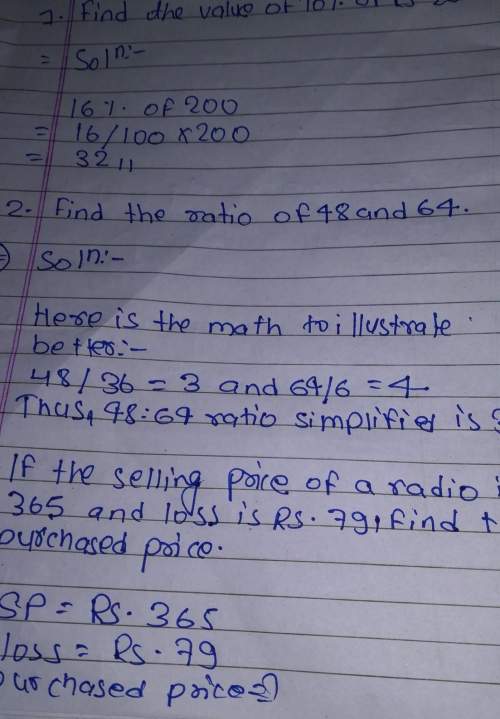 1. Find the value of 16% of
= Solⁿ:-
16%. of 200
= 16/100 × 200
= 32 ,,
2. Find the ratio of 48 and 64.
Solⁿ:-
Here is the math to illustrate
better:-
48/36 = 3 and 64/6 = 4
Thus, 48:64 ratio simplified is 3
If the selling price of a radio i
365 and loss is Rs. 79, find t
purchased price.
SP = Rs. 365
loss = Rs. 79
purchased price = ?